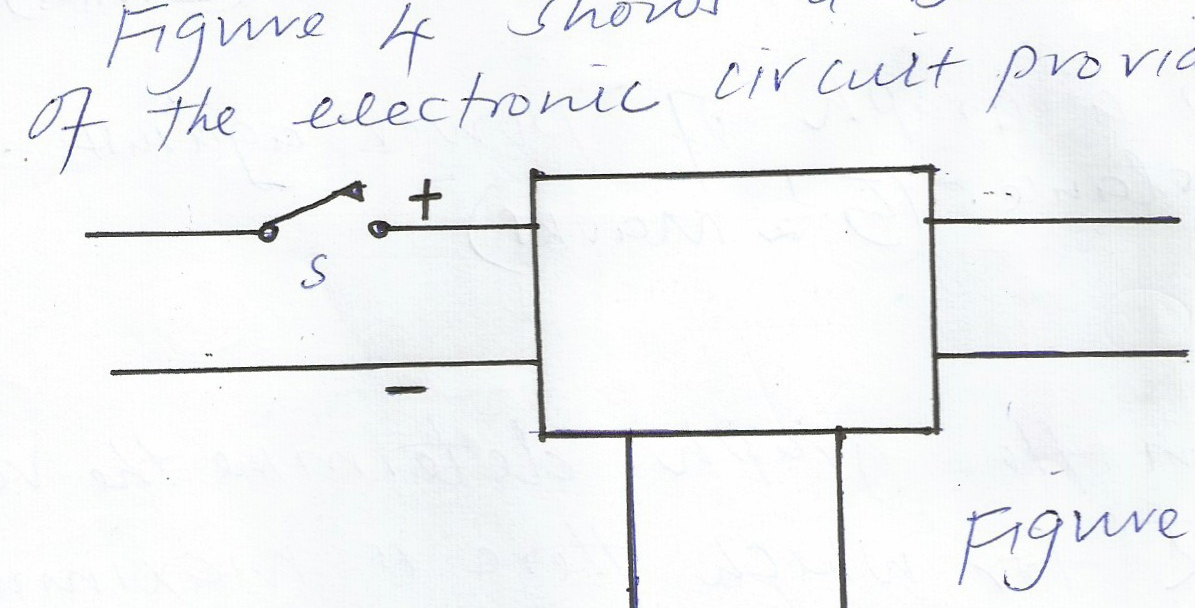 Figure 4 shows a
of the electronic circuit provid
+
S
−
Figure